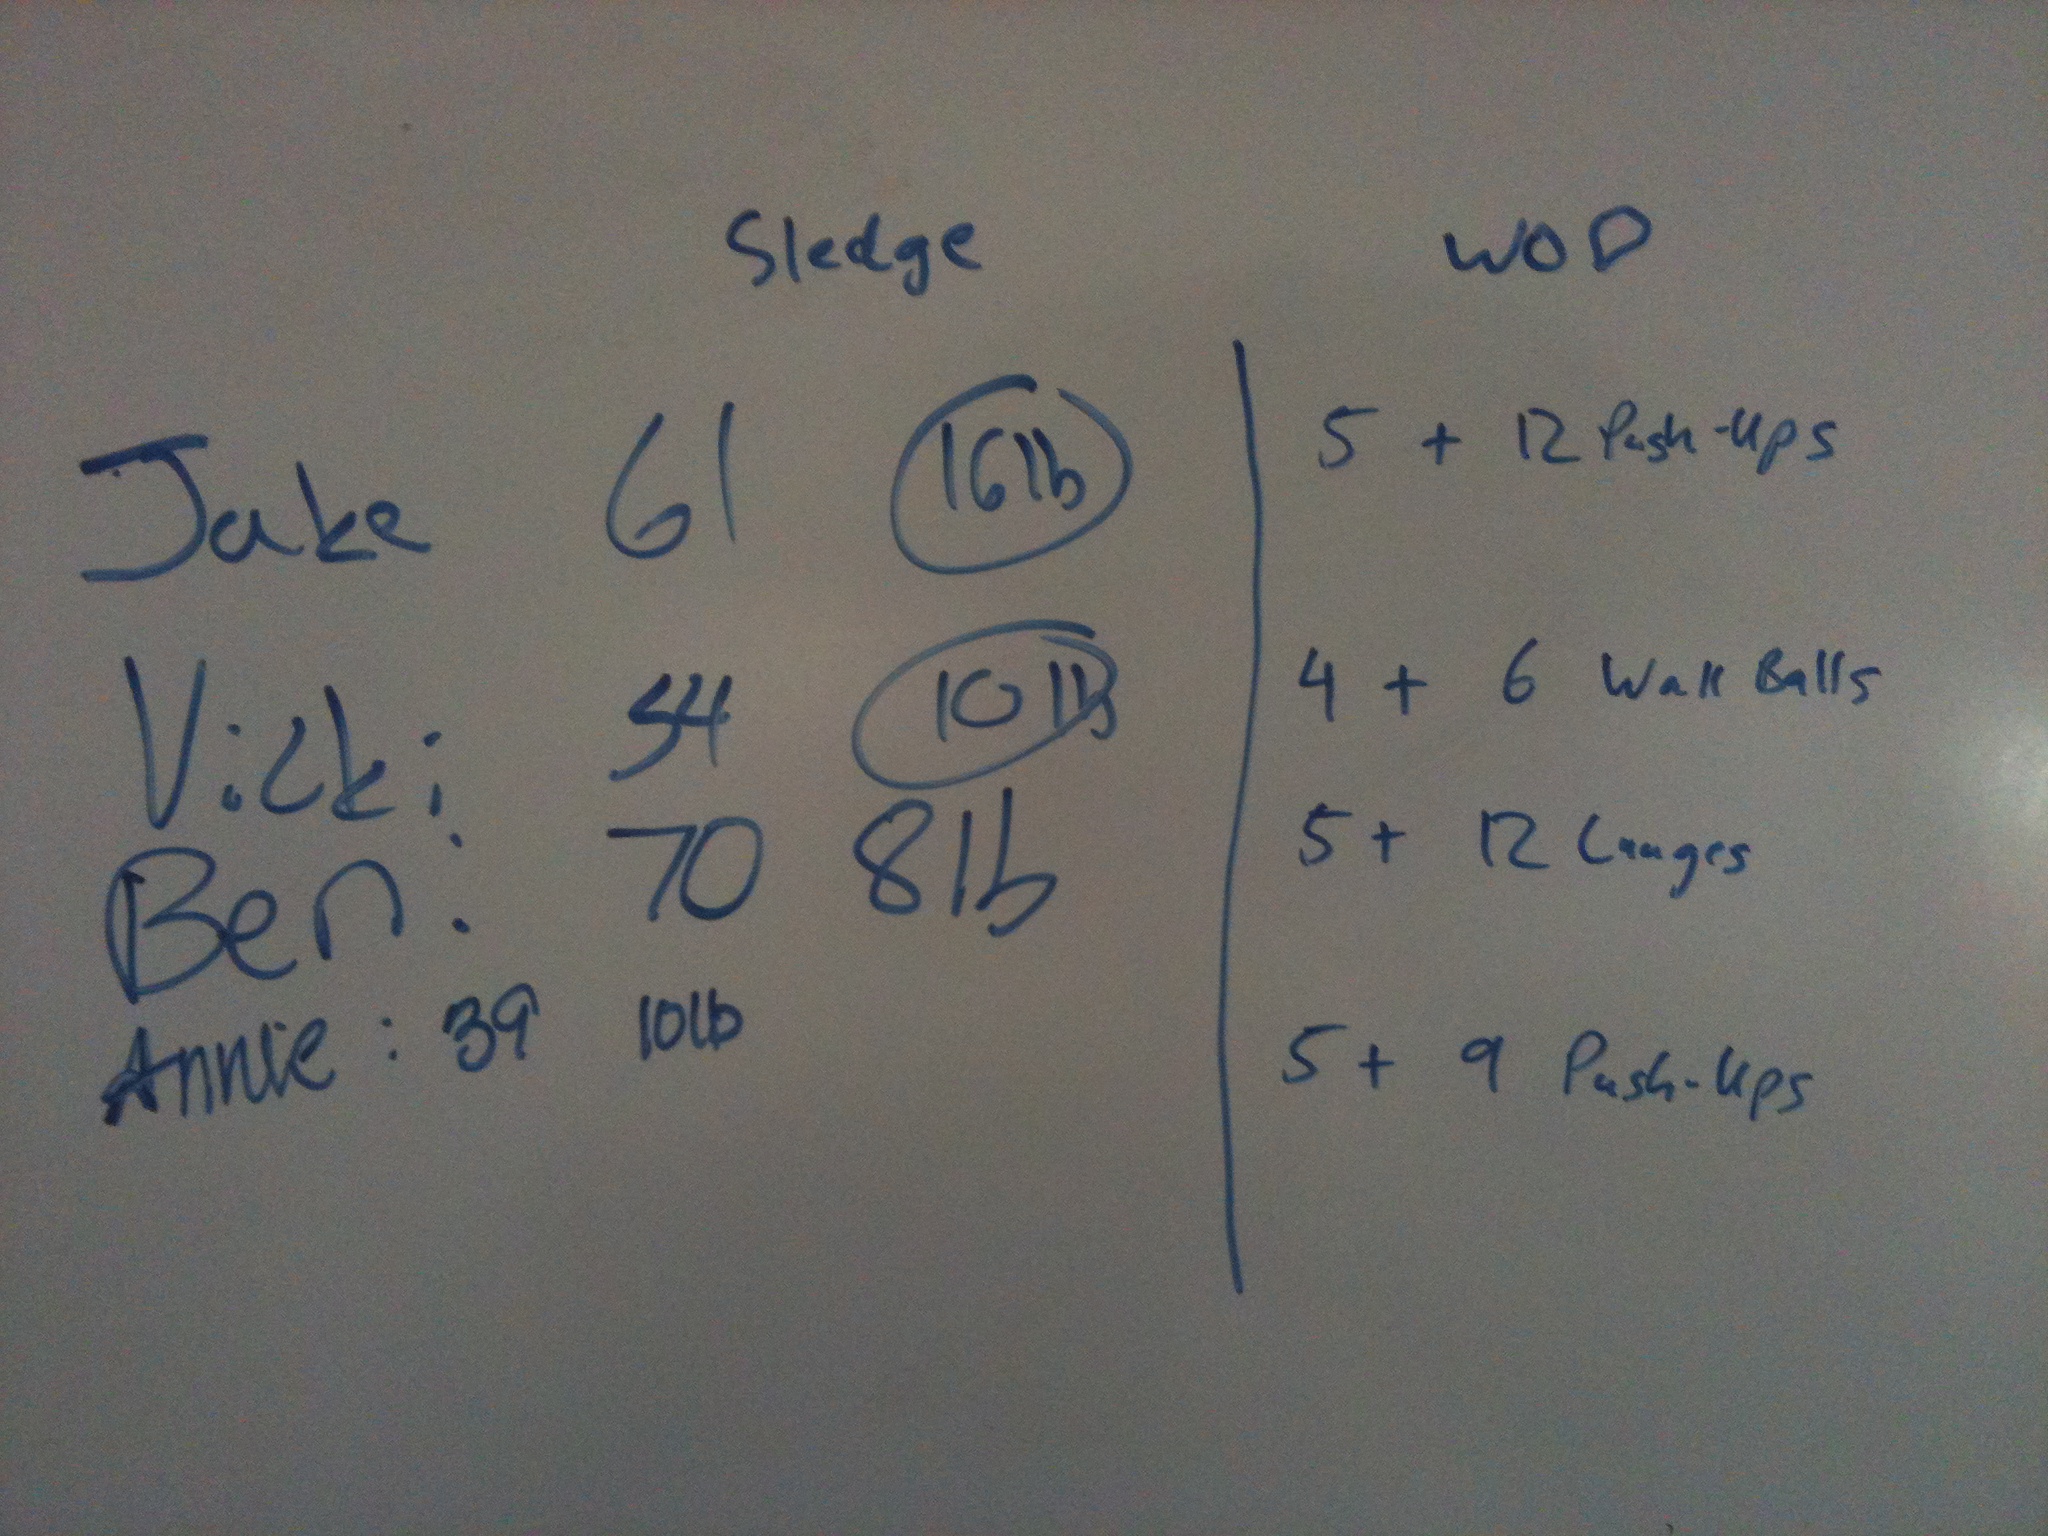 Sledge WOD
Jake 61 16lb 5 + 12 Push-Ups
Vicki 54 10lb 4 + 6 Wall Balls
Ben: 70 8lb 5 + 12 Lunges
Annie: 39 10lb 5 + 9 Push-Ups